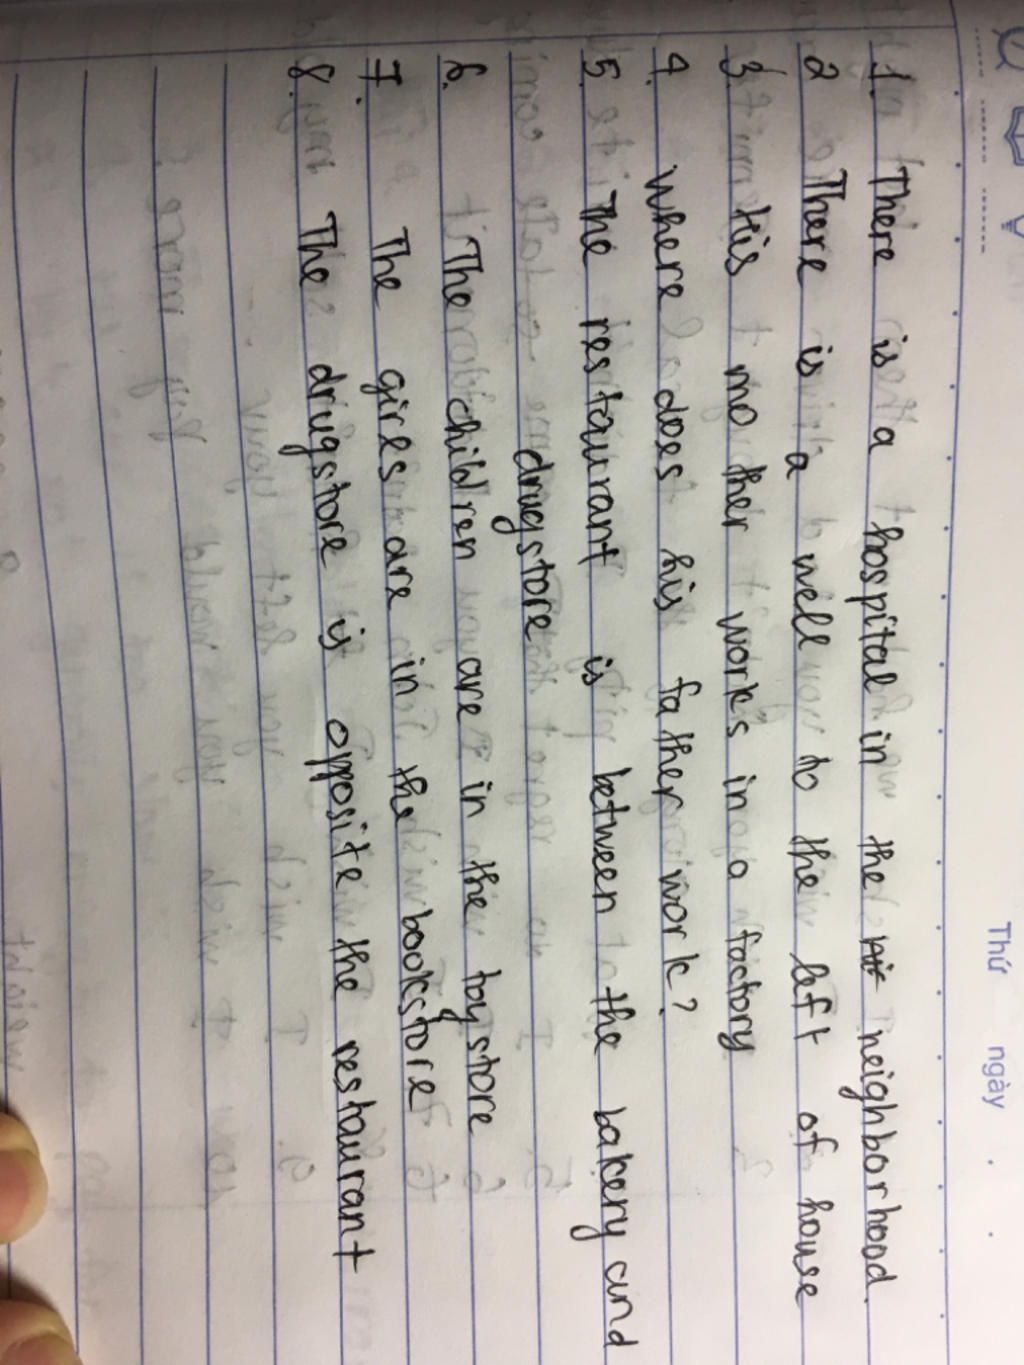 Thứ ngày
1. There is a hospital in the neighborhood.
2 There is a well to the left of house
3 His mother works in a factory
4. where does his father work?
5 The restaurant is between the bakery and
drugstore
6. The children are in the toystore
7. The girls are in the bookstore
8. The drugstore is opposite the restaurant